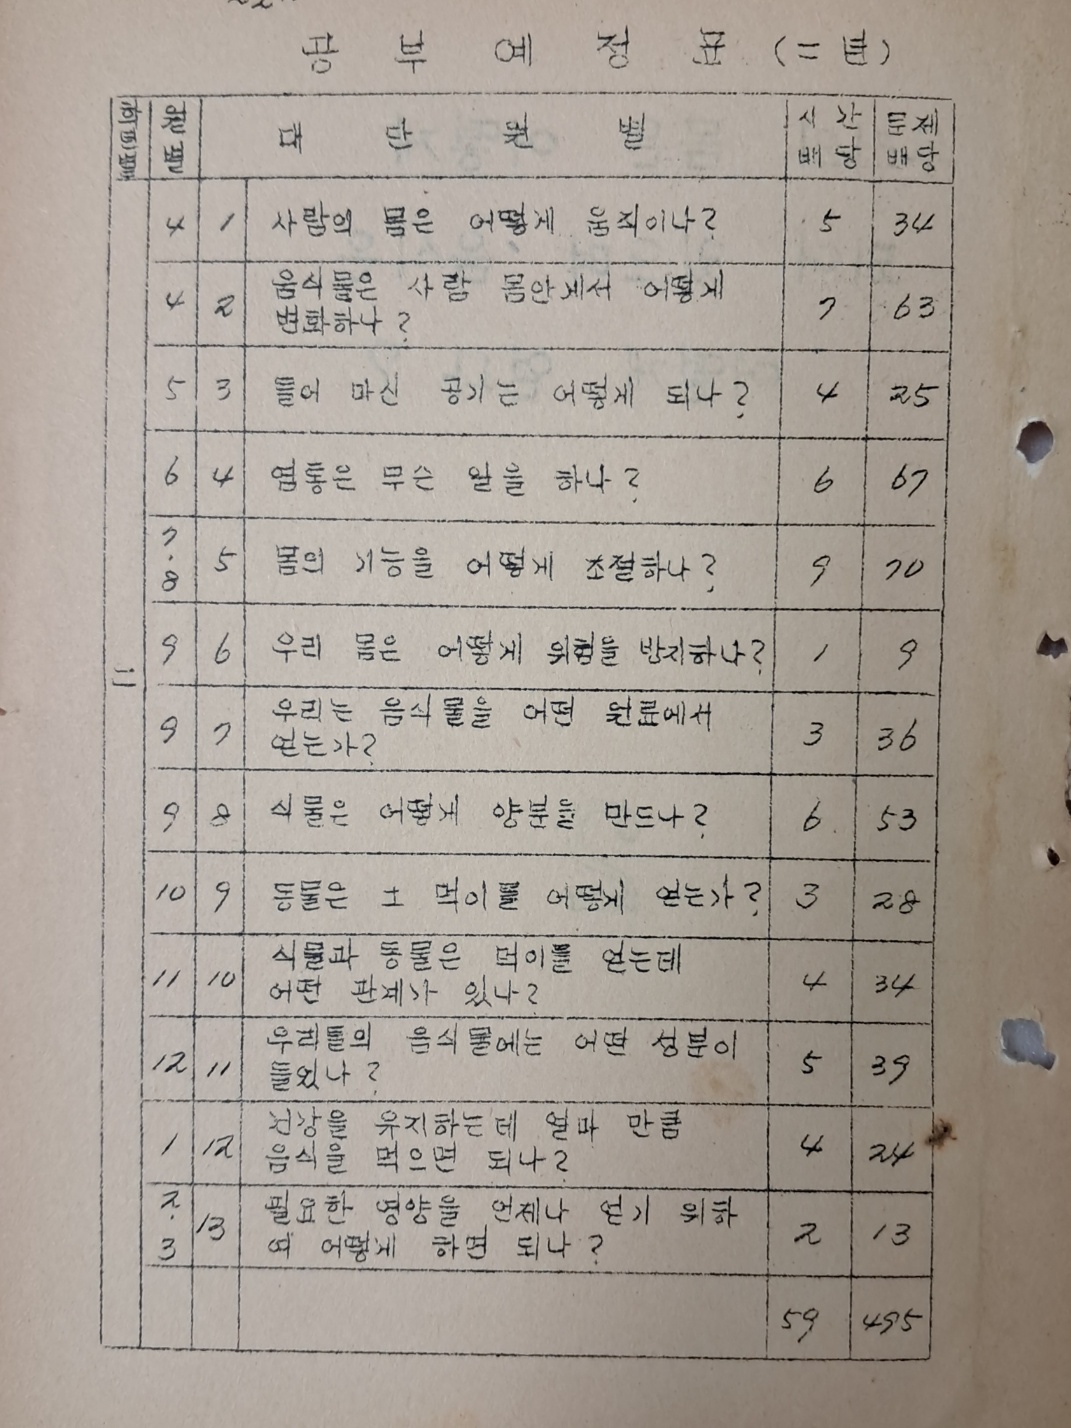 공 부 예 정 표 (二 편)
학년별 월별 대 단 원 별 시간배당 문제배당
二
4 1 사람의 몸은 어떻게 움직이나? 5 34
4 2 음식물은 사람 몸안게서 어떻게
변화하나? 7 63
5 3 들어 마신 공기는 어떻게 되나? 4 25
6 4 염통은 무슨 일을 하나? 6 67
7·8 5 몸의 기능을 어떻게 조절하나? 9 70
9 6 우리 몸은 어떻게 위험을 방지하나? 1 9
9 7 우리는 음식물을 어떤 원료에서
얻는가? 3 36
9 8 식물은 어떻게 양분을 만드나? 6 53
10 9 동물은 그 먹이를 어떻게 얻는가? 3 28
11 10 식물과 동물은 먹이를 얻는데
어떤 관계가 있나? 4 34
12 11 우리들의 음식물에는 어떤 성분이
들었나? 5 39
1 12 건강을 유지하는데 얼마 만큼
음식을 먹으면 되나? 4 24
2·3 13 필요한 영양을 언제나 얻기 위하
여 어떻게 하면 되나? 2 13
59 495